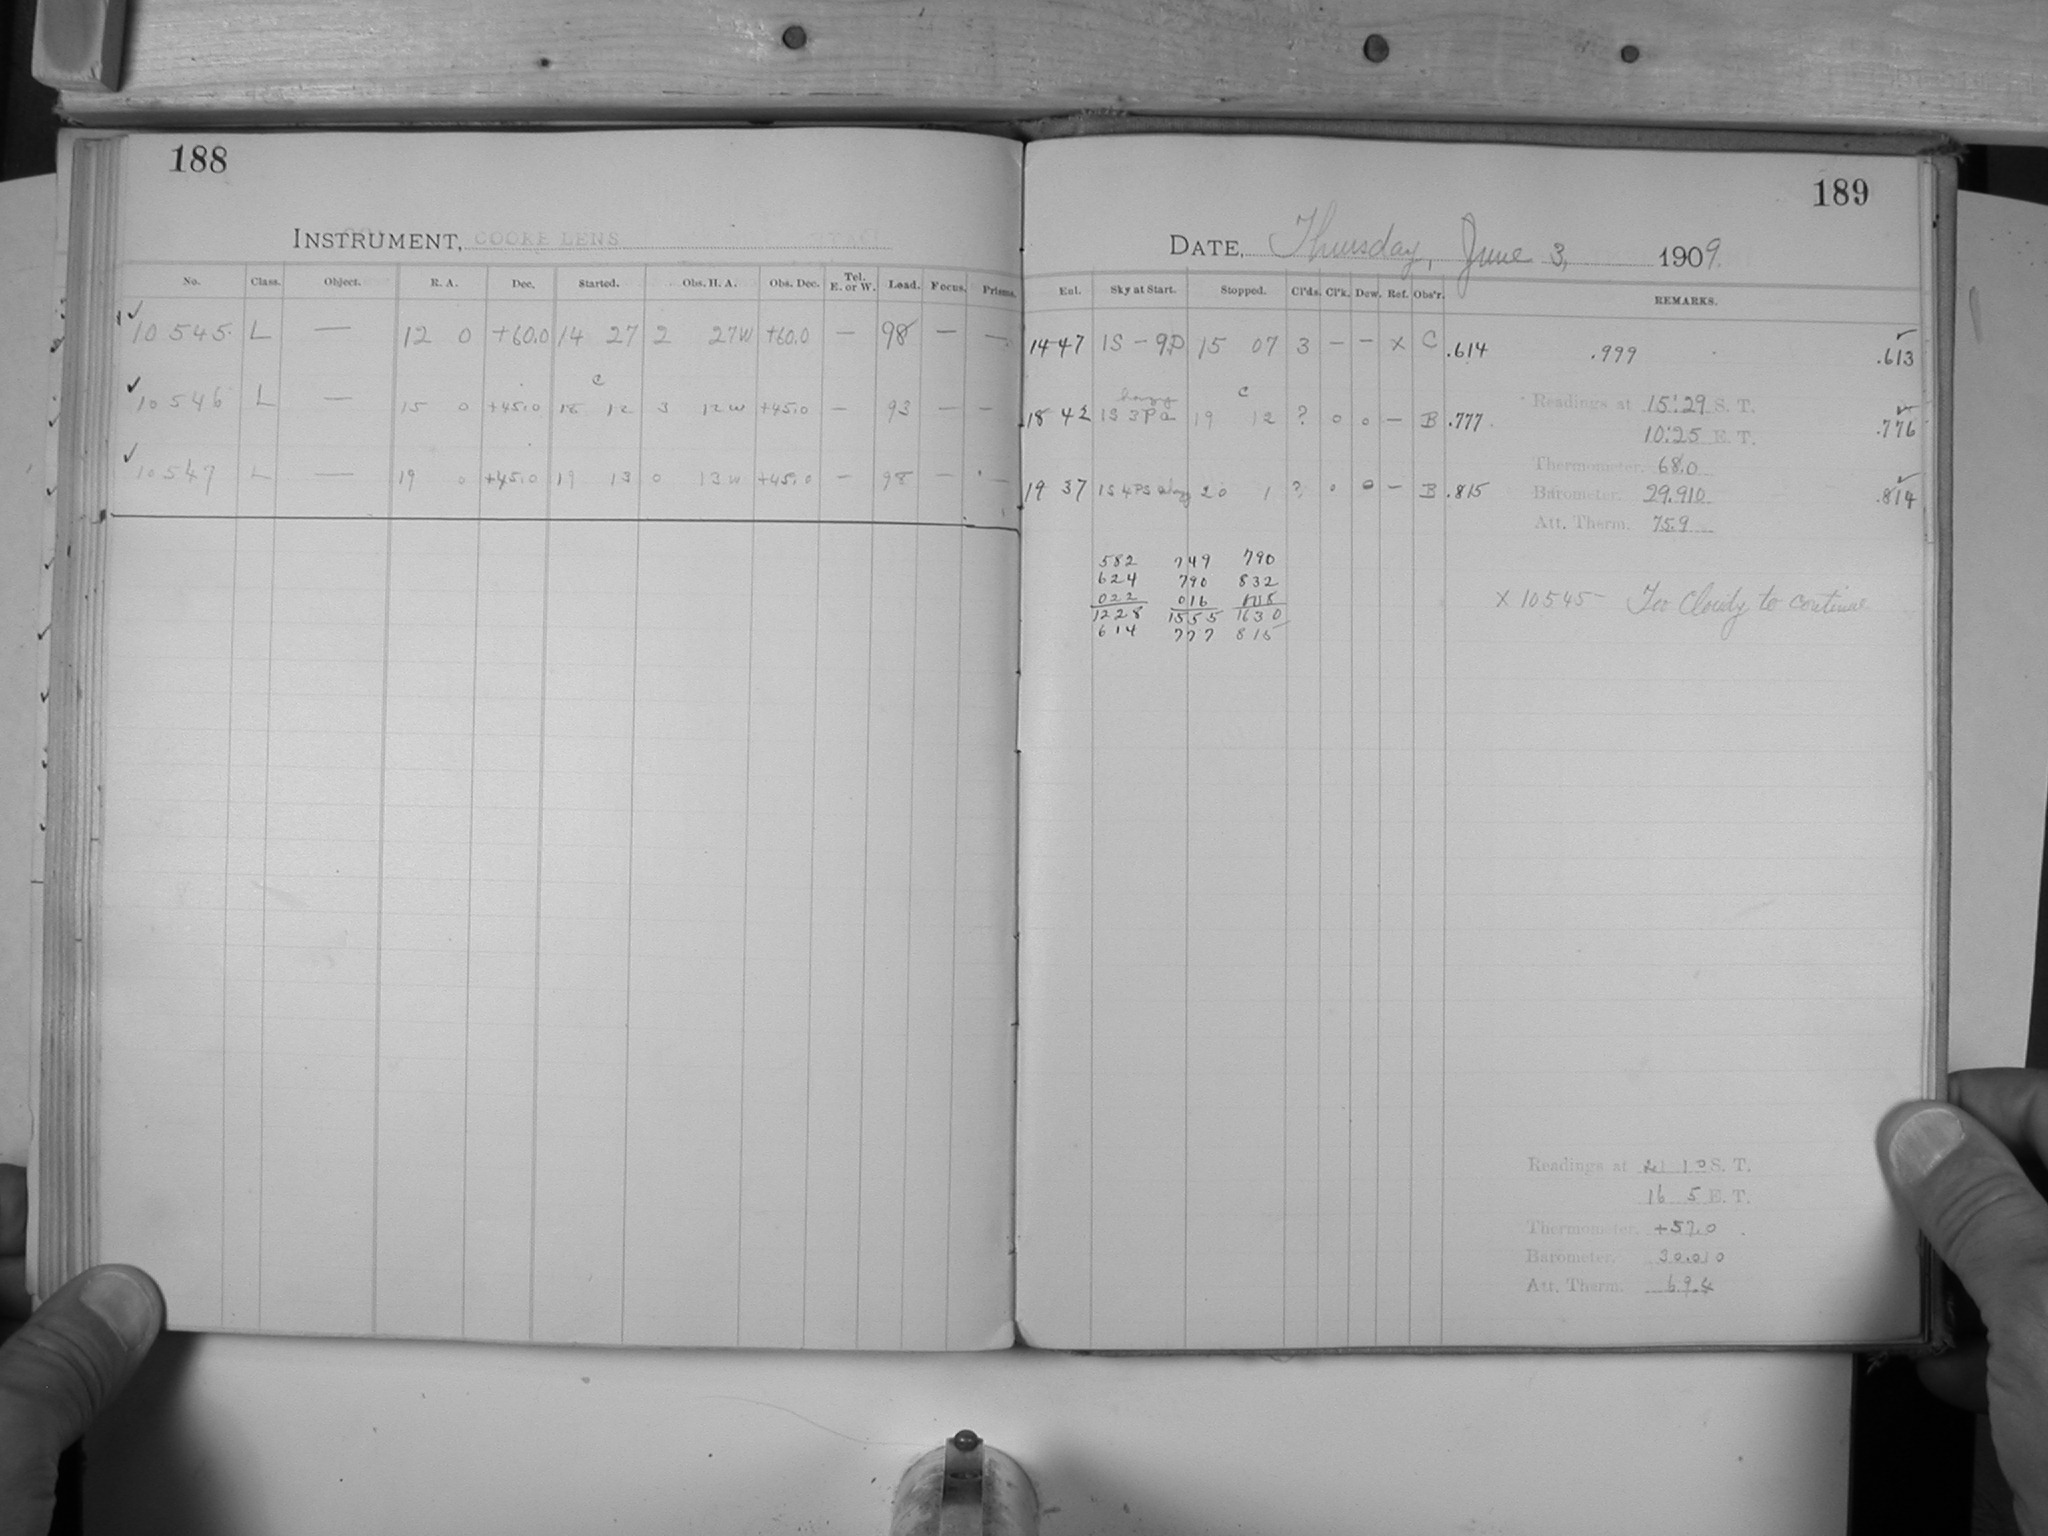 188
INSTRUMENT, COOKE LENS
No. Class. Object. R. A. Dec. Started. Obs. H. A. Obs. Dec. Tel. E. or W. Load. Focus. Prisms.
✓ 10545 L — 12 0 +60.0 14 27 2 27W +60.0 — 98 — —
c
✓ 10546 L — 15 0 +45.0 18 12 3 12W +45.0 — 93 — —
✓ 10547 L — 19 0 +45.0 19 13 0 13W +45.0 — 98 — —
189
DATE, Thursday, June 3, 1909.
Ex1. Sky at Start. Stopped. Cl'ds. Cl'k. Dew. Ref. Obs'r. REMARKS.
14 47 1S-9P 15 07 3 — — x C .614 .999 .613
hazy c
18 42 1S 3P a 19 12 ? 0 0 — B .777 .776
19 37 1S 4PS hazy 20 1 ? 0 0 — B .815 .814
Readings at 15:29 S. T.
10:25 E. T.
Thermometer. 68.0
Barometer. 29.910
Att. Therm. 75.9
582 749 790
624 790 832
022 016 008
1228 1555 1630
614 777 815
x 10545 - Too Cloudy to continue
Readings at 21 10 S. T.
16 5 E. T.
Thermometer. +57.0
Barometer. 30.010
Att. Therm. 69.4